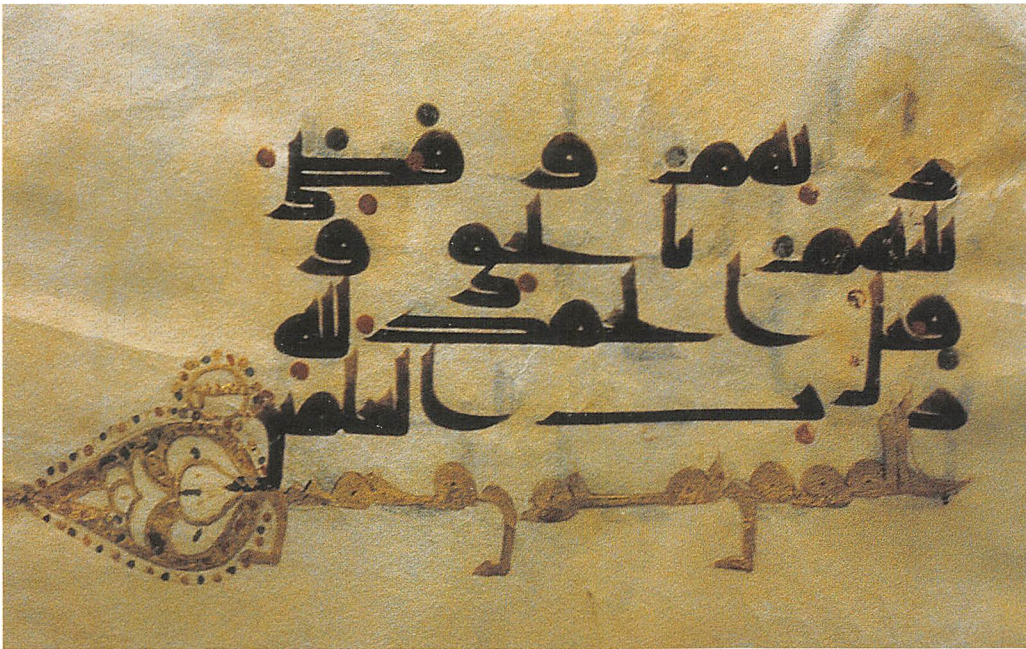 ربهم وقضي
بينهم بالحق و
قيل الحمد لله
رب العلمين